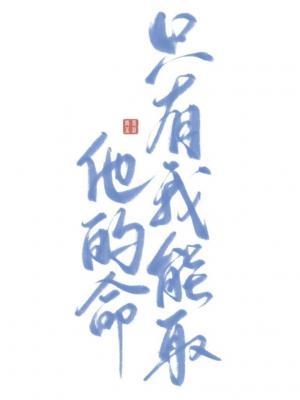 只有我能取
他的命